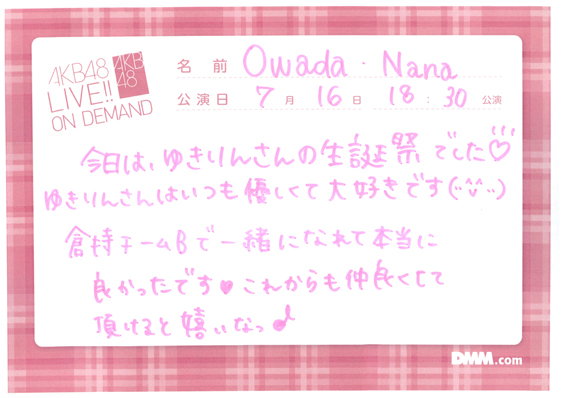 AKB48
LIVE!!
ON DEMAND
AKB
48
名 前 Owada・Nana
公演日 7月 16日 18:30 公演
今日は、ゆきりんさんの生誕祭でした♡
ゆきりんさんはいつも優しくて大好きです(¨̮)
倉持チームBで一緒になれて本当に
良かったです♥これからも仲良くして
頂けると嬉しいなっ♪
DMM.com